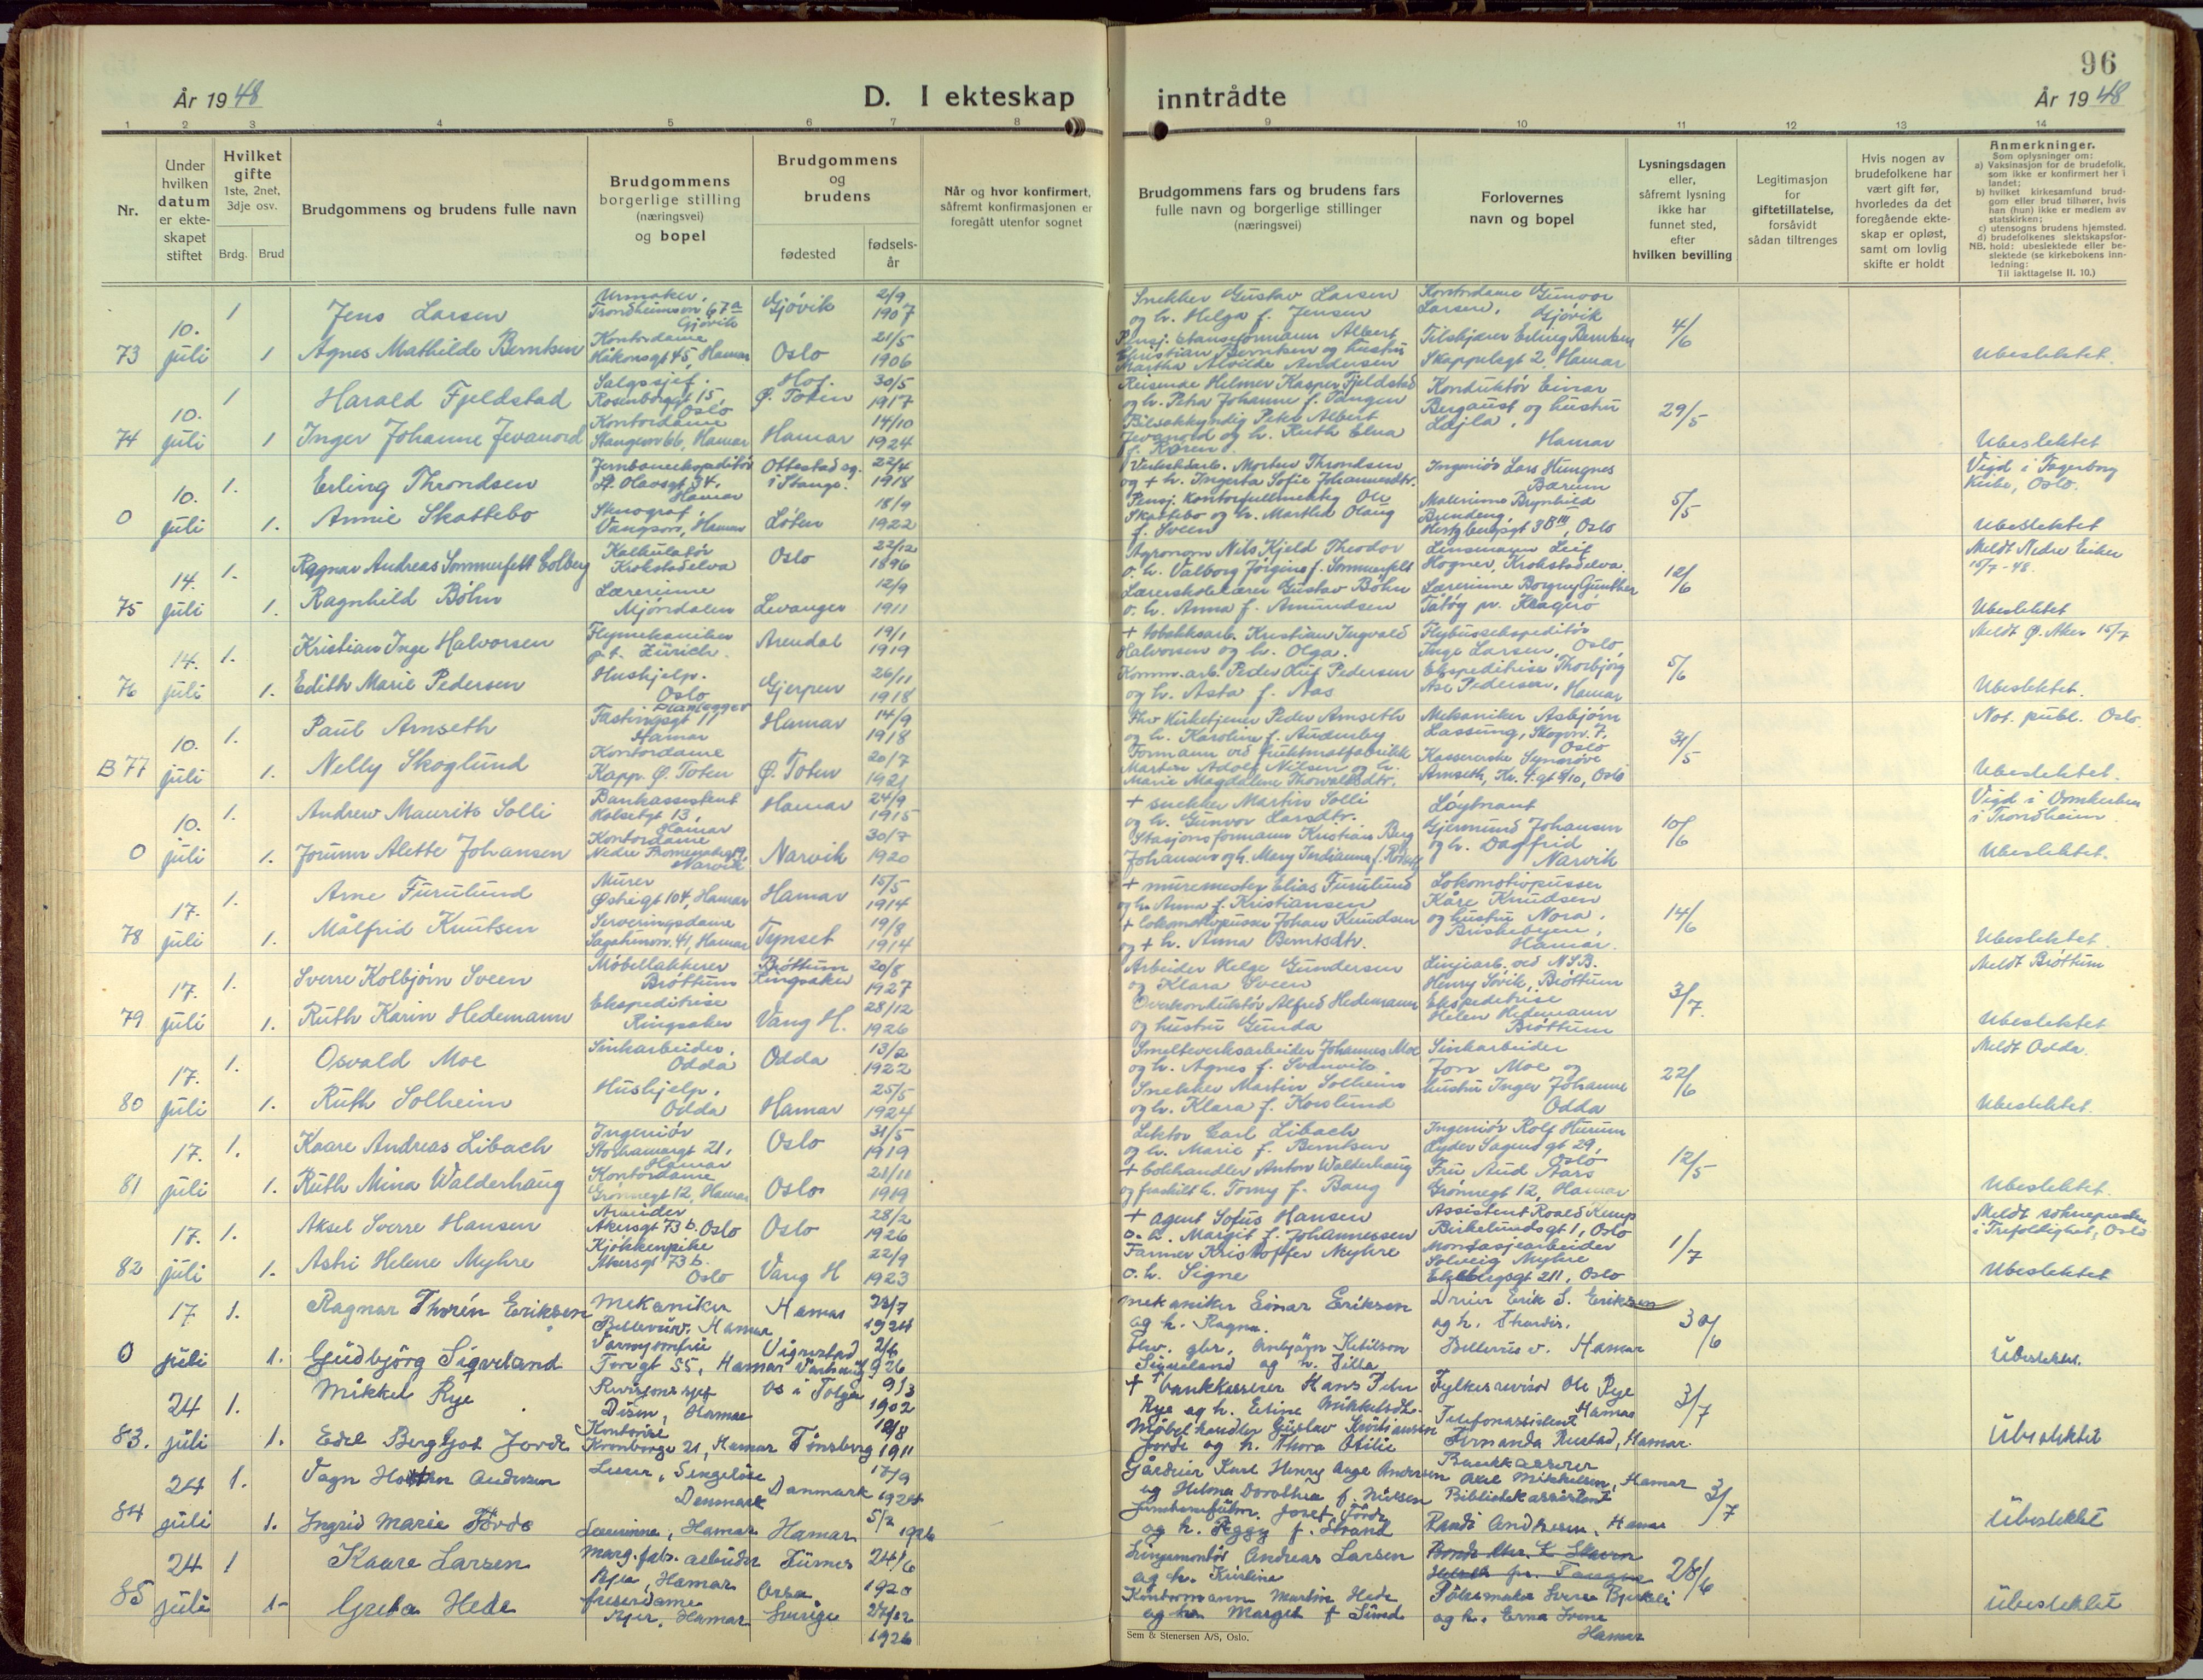 96
År 1948
D. I ekteskap inntrådte
År 1948
1 2 3 4 5 6 7 8 9 10 11 12 13 14
Nr.
Under hvilken datum er ekteskapet stiftet
Hvilket gifte
1ste, 2net, 3dje osv.
Brdg. Brud
Brudgommens og brudens fulle navn
Brudgommens borgerlige stilling (næringsvei) og bopel
Brudgommens og brudens
fødested
fødselsår
Når og hvor konfirmert, såfremt konfirmasjonen er foregått utenfor sognet
Brudgommens fars og brudens fars fulle navn og borgerlige stillinger (næringsvei)
Forlovernes navn og bopel
Lysningsdagen eller, såfremt lysning ikke har funnet sted, efter hvilken bevilling
Legitimasjon for giftetillatelse, forsåvidt sådan tiltrenges
Hvis nogen av brudefolkene har vært gift før, hvorledes da det foregående ekteskap er opløst, samt om lovlig skifte er holdt
Anmerkninger.
Som oplysninger om:
a) Vaksinasjon for de brudefolk, som ikke er konfirmert her i landet;
b) hvilket kirkesamfund brudgom eller brud tilhører, hvis han (hun) ikke er medlem av statskirken;
c) utensogns brudens hjemsted.
d) brudefolkenes slektskapsforhold: ubeslektede eller beslektede (se kirkebokens innledning:
NB.
Til iakttagelse II. 10.)
73 10. juli 1 Jens Larsen Urmaker, Trondheimsvn 67a Gjøvik Gjøvik 2/9 1907
Snekker Gustav Larsen og h. Helga f. Jensen Kontordame Gunvor Larsen, Gjøvik 4/6
1 Agnes Mathilde Berntsen Kontordame Håkonsgt 45, Hamar Oslo 21/5 1906
Pensj. stanseformann Albert Christian Berntsen og hustru Martha Alvilde Andersen Erling Berntsen Skappelsgt 2, Hamar Ubeslektet.
74 10. juli 1 Harald Fjeldstad Salgssjef. Rosenborggt 15, Oslo Hof. Ø. Toten 30/5 1917
Reisende Helmer Kasper Fjeldstad og h. Petra Johanne f. Tangen Konduktør Einar Bergaust og hustru Lajla, Hamar 29/5
1 Inger Johanne Jevanord Kontordame Stangevn 66, Hamar Hamar 14/10 1924
Bilsakkyndig Peter Albert Jevanord og h. Ruth Elna f. Karen Ubeslektet
0 10. juli 1. Erling Throndsen Jernbaneekspeditør St. Olavsgt 34, Hamar Ottestad sg. i Stange. 22/4 1918
Verkstedarb. Morten Throndsen og + h. Ingerta Sofie Johannesdtr. Ingeniør Lars Hungnes Bærum 5/5 Vigd i Fagerborg Kirke, Oslo.
1. Annie Skattebo Stenograf, Vangsvn, Hamar Løten 18/9 1922
Pensj. kontorfullmektig Ole Skattebo og h. Marthea Olaug f. Sveen Malerinne Brynhild Hertzbergsgt 3B III, Oslo Ubeslektet
75 14. juli 1. Ragnar Andreas Sommerfelt Colberg Kalkulatør Krokstadelva Oslo 22/12 1896
Agronom Nils Kjeld Theodor o. h. Valborg Jørgine f. Sommerfelt Lensmann Leif Hogner, Krokstadelva. 12/6 Meldt Nedre Eiker 15/7-48.
1. Ragnhild Bøhn Lærerinne Mjøndalen Levanger 12/9 1911
Lærerskolelærer Gustav Bøhn o. h. Anna f. Amundsen Lærerinne Borgny Gunther Tåtøy pr. Kragerø Ubeslektet
76 14. juli 1. Kristian Inge Halvorsen Flymekaniker p.t. Zürich. Arendal 19/1 1919
+ tobakksarb. Kristian Ingvald Halvorsen og h. Olga. Flybussekspeditør Inge Larsen, Oslo, 5/6 Meldt Ø. Aker 15/7
1. Edith Marie Pedersen Hushjelp. Oslo Gjerpen 26/11 1918
Komm.arb. Peder Oluf Pedersen og h. Asta f. Aas Ekspeditrise Thorbjørg Åse Pedersen, Hamar Ubeslektet.
B 77 10. juli 1. Paul Arnseth Planlegger Fastingsgt 11 Hamar Hamar 14/9 1918
Fhv kirketjener Peder Arnseth og h. Karoline f. Auderby Mekaniker Asbjørn Lassung, Skogvn. 7. Oslo 31/5 Not. publ. Oslo.
1. Nelly Skoglund Kontordame Kapp. Ø. Toten Ø. Toten 20/7 1921
Formann ved fruktmatfabrikk Martin Adolf Nilsen og h. Marie Magdalene Thorvaldsdtr. Kassererske Synnøve Arnseth, Kr. 4.gt 9/10, Oslo Ubeslektet.
0 10. juli 1. Andrew Maurits Solli Bankassistent Holsetgt 13, Hamar Hamar 24/9 1915
+ snekker Martin Solli og h. Gunvor Larsdtr. Løytnant Gjermund Johansen og h. Dagfrid Narvik 10/6 Vigd i Domkirken i Trondheim.
1. Jorunn Alette Johansen Kontordame Nedre Promenadegt 19, Narvik Narvik 30/7 1920
Stasjonsformann Kristian Berg Johansen og h. Mary Ubeslektet.
78 17. juli 1. Arne Furulund Murer Østregt 104, Hamar Hamar 15/5 1914
+ muremester Elias Furulund og h. Anna f. Kristiansen Lokomotivpusser Kåre Knudsen og hustru Nora, Briskebyen, Hamar. 14/6
1. Målfrid Knutsen Serveringsdame Sagatunvn. 41, Hamar Tynset 19/8 1914
+ lokomotivpusser Johan Knudsen og + h. Anna Berntsdtr. Ubeslektet.
79 17. juli 1. Sverre Kolbjørn Sveen Møbellakkerer Brøttum Brøttum Ringsaker 20/8 1927
Arbeider Helge Gundersen og Klara Sveen Linjearb. ved N.S.B. Henry Søvik, Brøttum 3/7. Meldt Brøttum
1. Ruth Karin Hedemann Ekspeditrise Ringsaker Vang H. 28/12 1926
Overkonduktør Alfred Hedemann og hustru Gunda Ekspeditrise Helen Hedemann Brøttum Ubeslektet
80 17. juli 1. Osvald Moe Sinkarbeider, Odda Odda 13/2 1922
Smelteverksarbeider Johannes Moe og h. Agnes f. Svanvik. Sinkarbeider Jon Moe og hustru Inger Johanne Odda 22/6 Meldt Odda.
1. Ruth Solheim Hushjelp. Odda Hamar 25/5 1924
Snekker Martin Solheim og h. Klara f. Korslund Ubeslektet.
81 17. juli 1. Kaare Andreas Libach Ingeniør Storhamargt 21, Hamar Oslo 31/5 1919
Lektor Carl Libach og h. Marie f. Berntsen Ingeniør Rolf Hurum Lyder Sagens gt 29, Oslo 12/5
1. Ruth Mina Walderhaug Kontordame Grønnegt 12, Hamar Oslo 21/11 1919
+ bokhandler Anton Walderhaug og fraskilt h. Tomy f. Bang Fru Aud Aars Grønnegt 12, Hamar Ubeslektet.
82 17. juli 1. Aksel Sverre Hansen Arbeider Akersgt 73 b. Oslo Oslo 28/2 1926
+ agent Sofus Hansen o. h. Margit f. Johannessen Assistent Roald Kemp Birkelunds gt 1, Oslo 1/7 Meldt soknepresten i Trefoldighet, Oslo
1. Astri Helene Myhre Kjøkkenpike Akersgt 73 b. Oslo Vang H 22/9 1923
Farmer Kristoffer Myhre o. h. Signe Montasjearbeider Solveig Myhre Ekebergsgt 211, Oslo Ubeslektet
0 17 juli 1. Ragnar Thorén Eriksen Mekaniker Bellevuev. Hamar Hamar 23/7 1924
Mekaniker Einar Eriksen og h. Ragna. Dreier Erik S. Eriksen og h. Thordis. Bellevue v. Hamar 30/6
1. Gudbjörg Sigveland Torvgt 55, Hamar Vigrestad 2/6 1926
Sigveland og h. Ubeslekt.
83. 24 juli 1. Mikkel Rye Revisjonssjef Disen, Hamar Os i Tolga 9/3 1902
+ bankkasserer Hans Peter Rye og h. Eline Mikkelsdt. Fylkesrevisor Ole Rye Hamar 3/7
1. Edel Bergljot Jorde Kontorist Kronborgv 21, Hamar Tønsberg 18/8 1911
Møbelhandler Gustav Kristiansen Jorde og h. Thora Otilie Telefonassistent Fernanda Rustad, Hamar. Ubeslektet
84 24 juli 1. Vagn Andersen Lærer, Sengeløse Denmark Danmark 17/9 1924
Gårdeier Karl Henry Aage Andersen og Helma Dorothea f. Nielsen Bankkasserer Axel Mikkelsen, Hamar 3/7
1. Ingrid Marie Förde Lærerinne, Hamar Hamar 5/2 1926
Josef Förde og h. Peggy f. Strand Bibliotekassistent Randi Andresen, Hamar Ubeslektet
85 24 juli 1 Kaare Larsen Marg. fabr. arbeider Ajer, Hamar Furnes 24/6 1920
Linjemontør Andreas Larsen og h. Kristine 28/6
1- Greta Hede Friserdame Ajer, Hamar Orsa Sverige 27/12 1926
Kontormann Martin Hede og h. Margit f Sund Pölsemaker Sverre Bjerkeli og h. Erna Irene Hamar Ubeslektet
Sem & Stenersen A/S, Oslo.